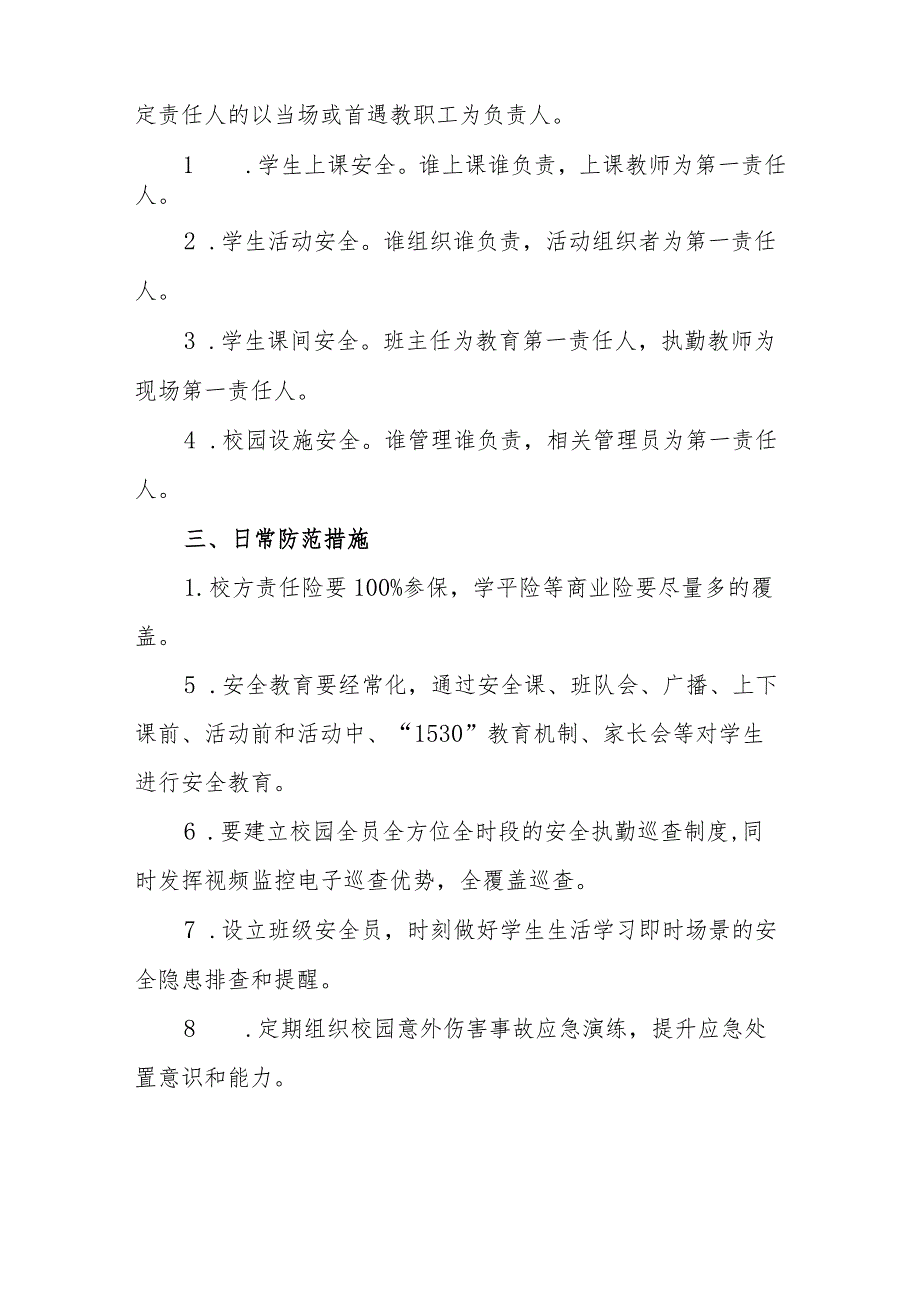 定责任人的以当场或首遇教职工为负责人。
1 .学生上课安全。谁上课谁负责，上课教师为第一责任
人。
2 .学生活动安全。谁组织谁负责，活动组织者为第一责任
人。
3 .学生课间安全。班主任为教育第一责任人，执勤教师为
现场第一责任人。
4 .校园设施安全。谁管理谁负责，相关管理员为第一责任
人。
三、日常防范措施
1.校方责任险要100%参保，学平险等商业险要尽量多的覆
盖。
5 .安全教育要经常化，通过安全课、班队会、广播、上下
课前、活动前和活动中、“1530”教育机制、家长会等对学生
进行安全教育。
6 .要建立校园全员全方位全时段的安全执勤巡查制度,同
时发挥视频监控电子巡查优势，全覆盖巡查。
7 .设立班级安全员，时刻做好学生生活学习即时场景的安
全隐患排查和提醒。
8 .定期组织校园意外伤害事故应急演练，提升应急处
置意识和能力。